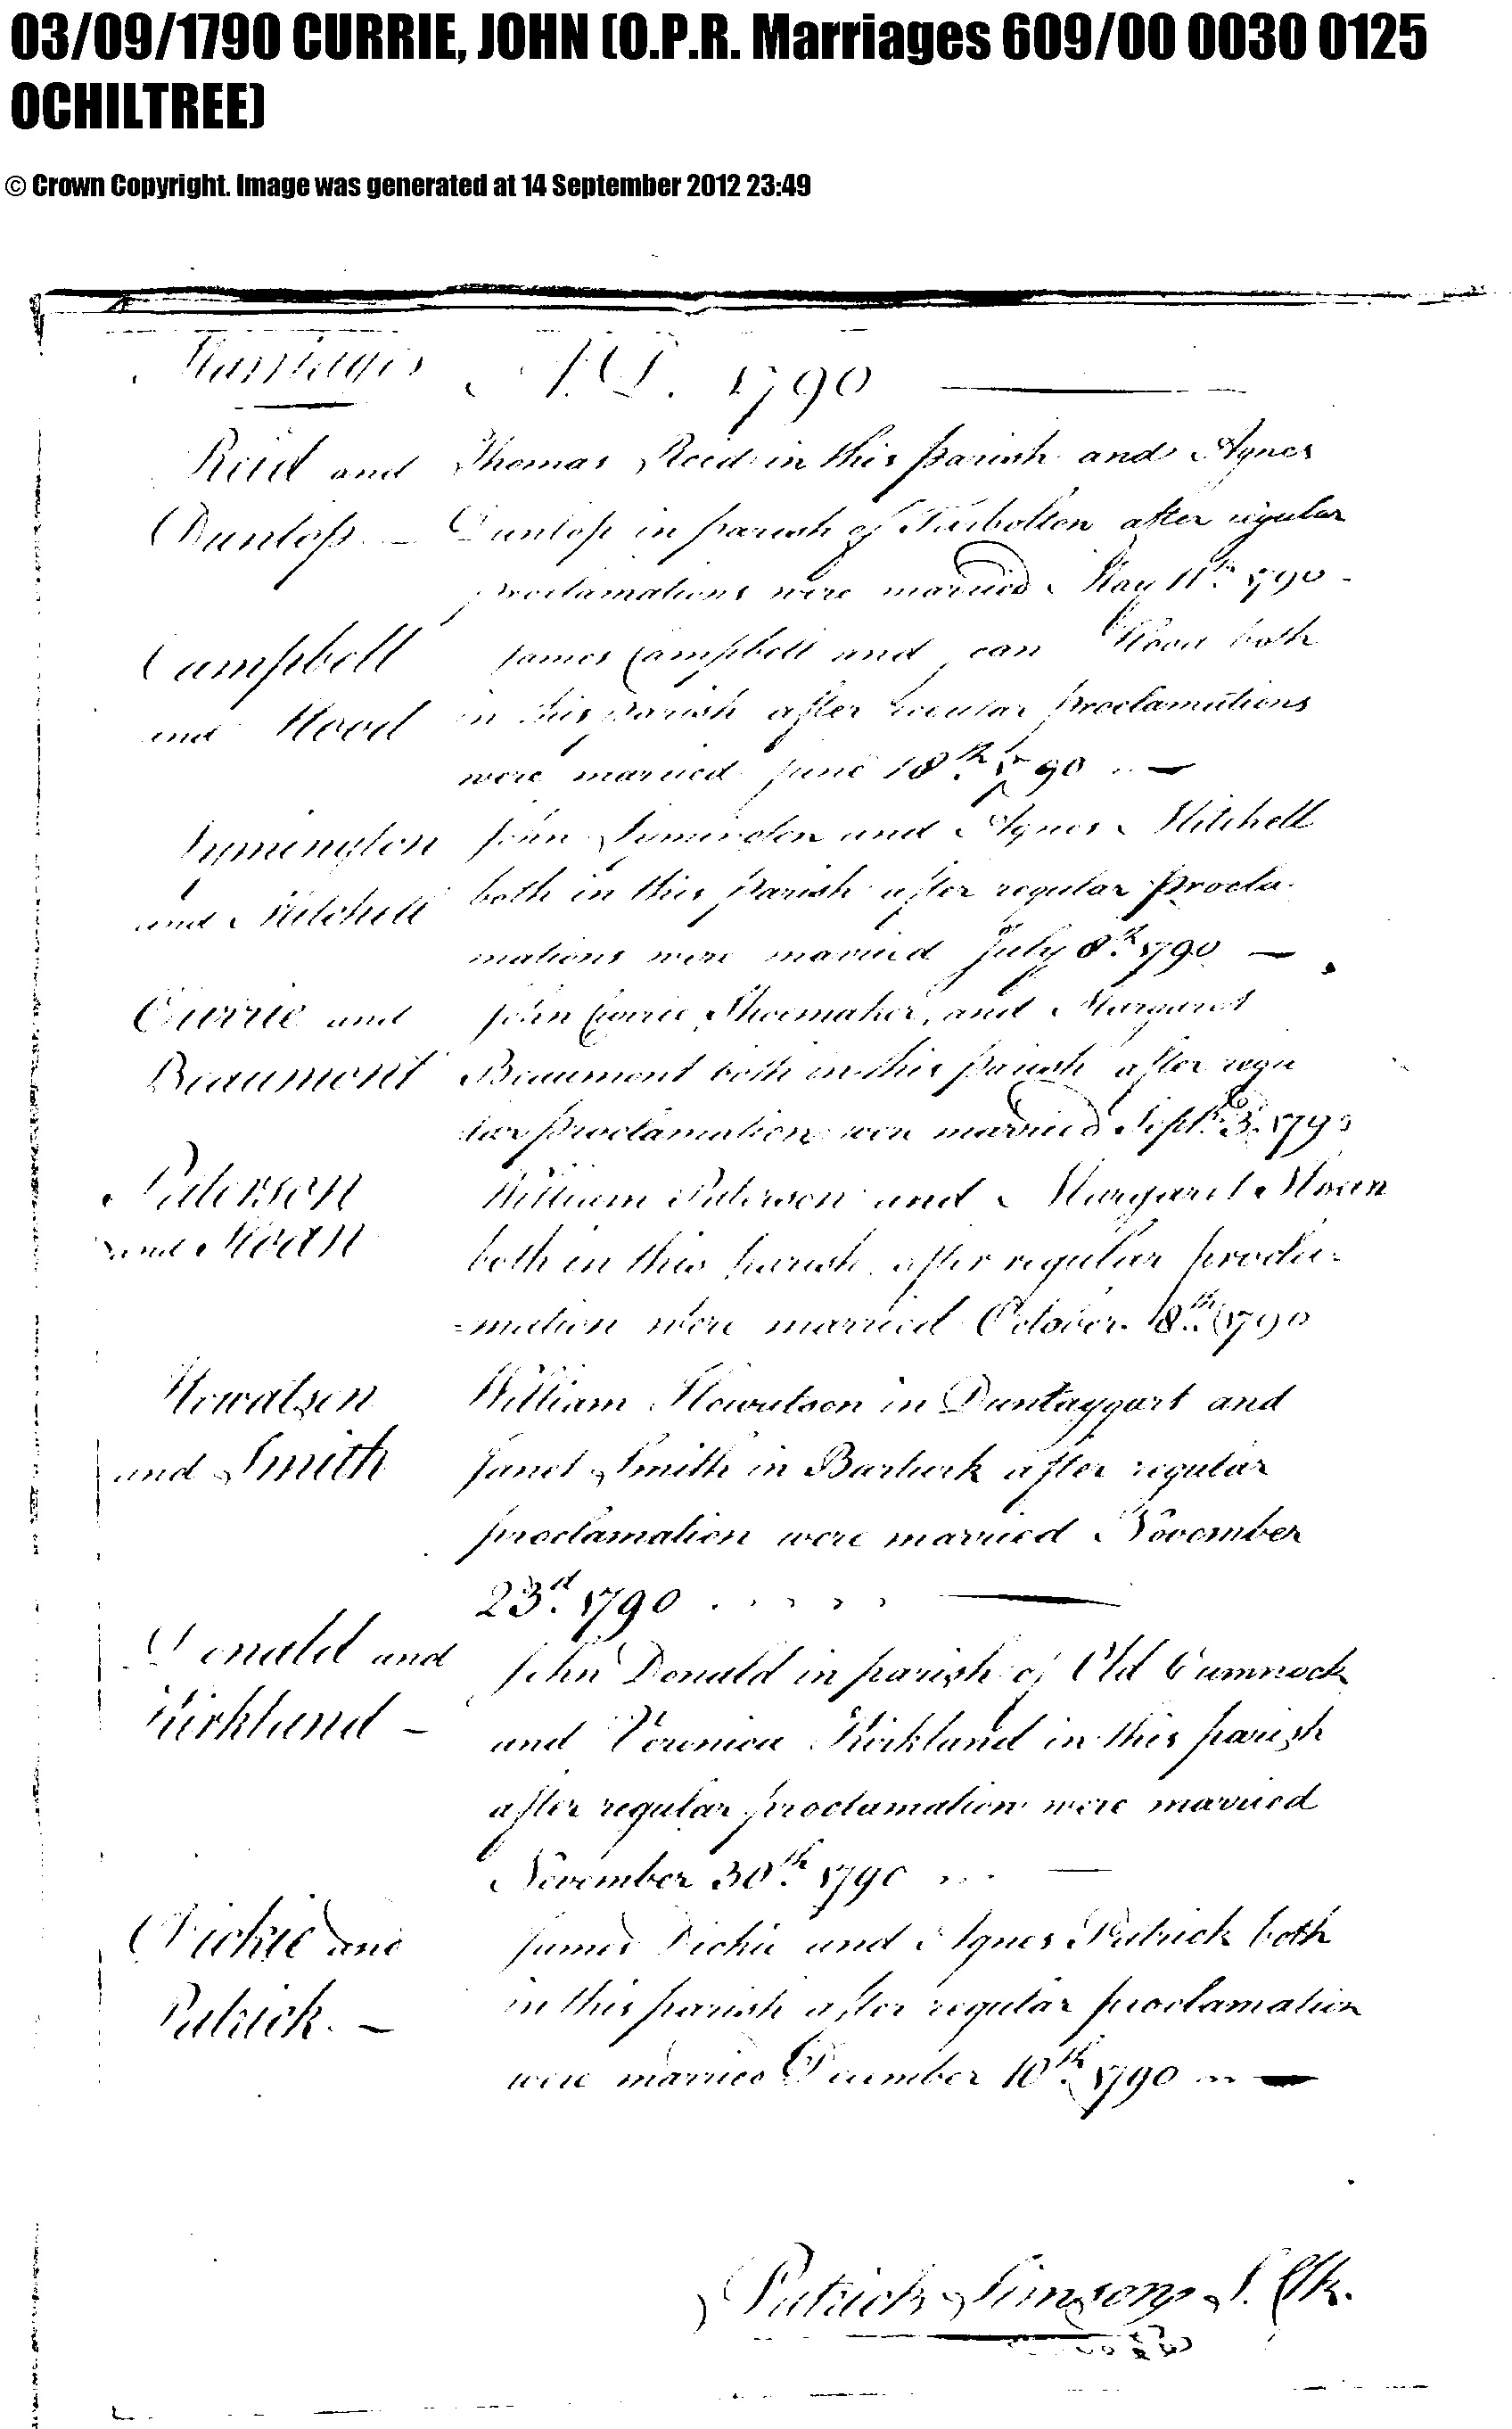 03/09/1790 CURRIE, JOHN (O.P.R. Marriages 609/00 0030 0125
OCHILTREE)
© Crown Copyright. Image was generated at 14 September 2012 23:49
Marriages A.D. 1790
Reid and
Dunlop
Thomas Reid in this parish and Agnes
Dunlop in parish of Tarbolton after regular
proclamations were married May 11th 1790
Campbell
and Hood
James Campbell and Jean Hood both
in this parish after regular proclamations
were married June 18th 1790
Symington
and Mitchell
John Symington and Agnes Mitchell
both in this parish after regular procla-
mations were married July 8th 1790
Currie and
Beaumont
John Currie Shoemaker, and Margaret
Beaumont both in this parish after regu
lar proclamation were married Septr 3d 1790
Paterson
and Moan
William Paterson and Margaret Moan
both in this parish after regular procla=
=mation were married October 18th 1790
Howatson
and Smith
William Howatson in Duntaggart and
Janet Smith in Barlurk after regular
proclamation were married November
23d 1790
Donald and
Kirkland
John Donald in parish of Old Cumnock
and Veronica Kirkland in this parish
after regular proclamation were married
November 30th 1790
Dickie and
Patrick.
James Dickie and Agnes Patrick both
in this parish after regular proclamation
were married December 10th 1790
Patrick Simson S. Clk.